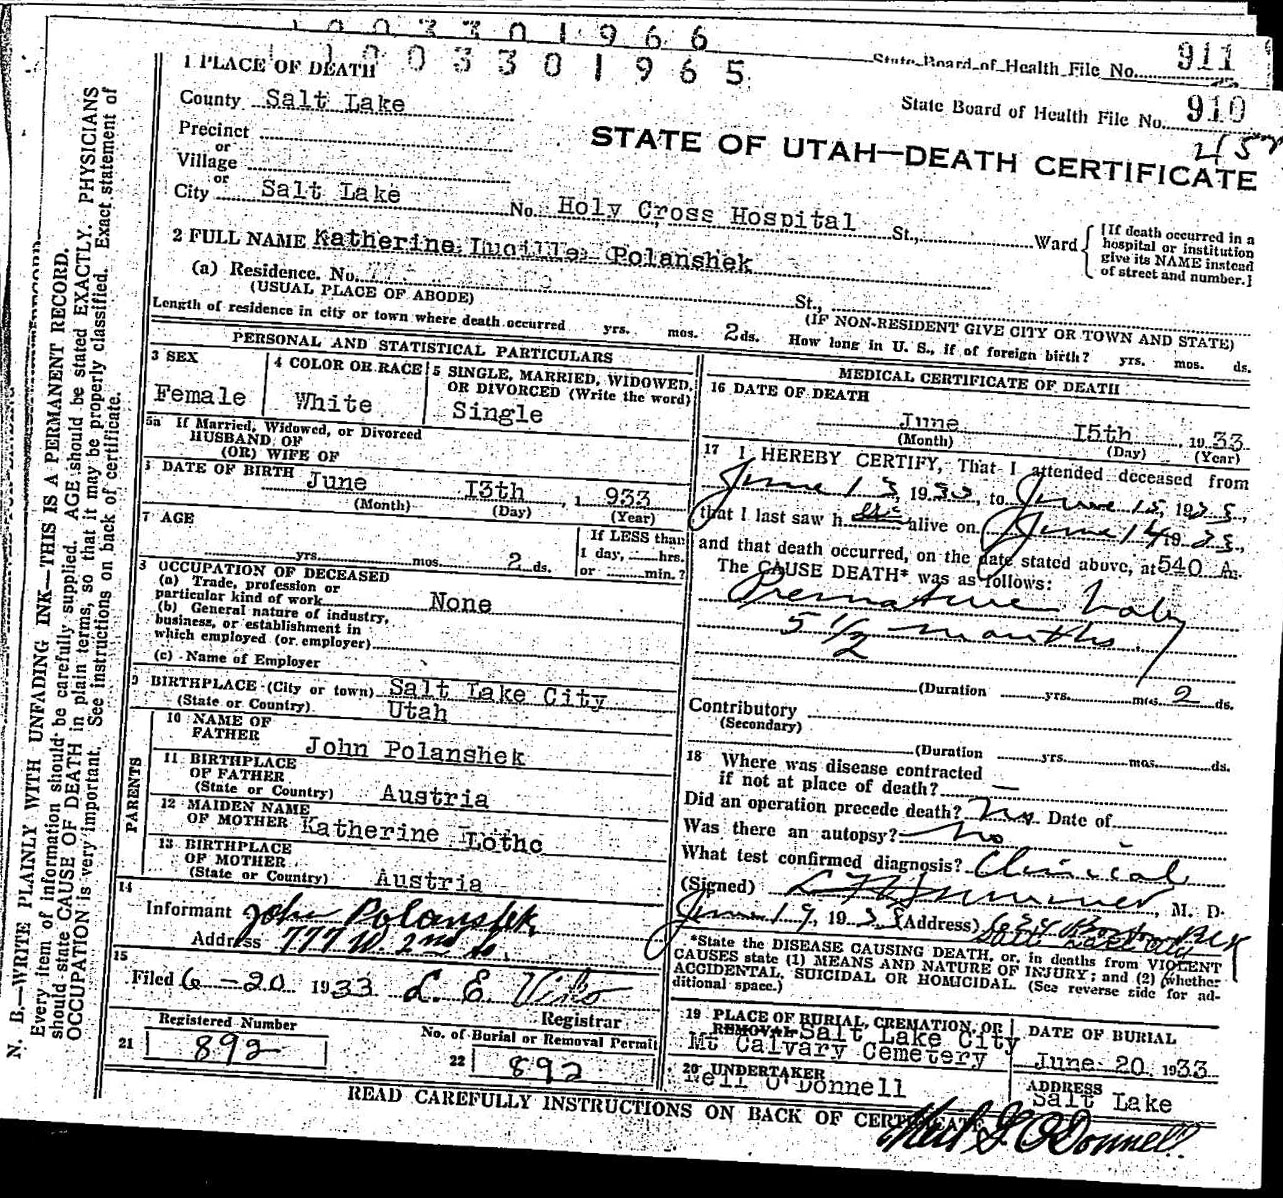 1 0 0 3 3 0 1 9 6 6
State Board of Health File No. 911
1 0 0 3 3 0 1 9 6 5
1 PLACE OF DEATH
State Board of Health File No. 910
County Salt Lake
STATE OF UTAH—DEATH CERTIFICATE
Precinct
or
Village
or
City Salt Lake No. Holy Cross Hospital St., Ward
[If death occurred in a
hospital or institution
give its NAME instead
of street and number.]
2 FULL NAME Katherine Lucille Polanshek
(a) Residence. No. St.,
(USUAL PLACE OF ABODE)
(IF NON-RESIDENT GIVE CITY OR TOWN AND STATE)
Length of residence in city or town where death occurred yrs. mos. 2 ds. How long in U. S., if of foreign birth? yrs. mos. ds.
PERSONAL AND STATISTICAL PARTICULARS
3 SEX
Female
4 COLOR OR RACE
White
5 SINGLE, MARRIED, WIDOWED,
OR DIVORCED (Write the word)
Single
5a If Married, Widowed, or Divorced
HUSBAND OF
(OR) WIFE OF
DATE OF BIRTH June 13th, 1 933
(Month) (Day) (Year)
7 AGE
yrs. mos. 2 ds.
If LESS than
1 day, hrs.
or min.?
8 OCCUPATION OF DECEASED
(a) Trade, profession or
particular kind of work None
(b) General nature of industry,
business, or establishment in
which employed (or employer)
(c) Name of Employer
9 BIRTHPLACE (City or town) Salt Lake City
(State or Country) Utah
PARENTS
10 NAME OF
FATHER John Polanshek
11 BIRTHPLACE
OF FATHER
(State or Country) Austria
12 MAIDEN NAME
OF MOTHER Katherine Lothc
13 BIRTHPLACE
OF MOTHER
(State or Country) Austria
14
Informant John Polanshek
Address 777 W. 2nd So.
15
Filed 6-20 1933 L. E. Viko
Registrar
Registered Number
21 892
No. of Burial or Removal Permit
22 892
MEDICAL CERTIFICATE OF DEATH
16 DATE OF DEATH
June 15th, 1933
(Month) (Day) (Year)
17 I HEREBY CERTIFY, That I attended deceased from
June 13, 1933, to June 15, 1933,
that I last saw h alive on June 14 1933,
and that death occurred, on the date stated above, at 540 A.
The CAUSE DEATH* was as follows:
Premature baby
5 1/2 months
(Duration yrs. mos. 2 ds.
Contributory
(Secondary)
(Duration yrs. mos. ds.
18 Where was disease contracted
if not at place of death? —
Did an operation precede death? No Date of
Was there an autopsy? No
What test confirmed diagnosis? Clinical
(Signed) M. D.
June 19, 1933 (Address)
Salt Lake City
*State the DISEASE CAUSING DEATH, or, in deaths from VIOLENT
CAUSES state (1) MEANS AND NATURE OF INJURY; and (2) whether
ACCIDENTAL, SUICIDAL OR HOMICIDAL. (See reverse side for ad-
ditional space.)
19 PLACE OF BURIAL, CREMATION, OR
REMOVAL Salt Lake City
Mt Calvary Cemetery
DATE OF BURIAL
June 20 1933
20 UNDERTAKER
Neil O'Donnell
ADDRESS
Salt Lake
READ CAREFULLY INSTRUCTIONS ON BACK OF CERTIFICATE
Neil O'Donnell
N. B.—WRITE PLAINLY WITH UNFADING INK—THIS IS A PERMANENT RECORD.
Every item of information should be carefully supplied. AGE should be stated EXACTLY. PHYSICIANS
should state CAUSE OF DEATH in plain terms, so that it may be properly classified. Exact statement of
OCCUPATION is very important. See instructions on back of certificate.